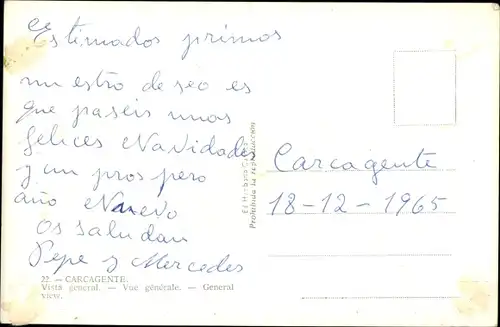 Estimados primos
nuestro deseo es
que paseis unas
felices Navidades
y un prospero
año Nuevo
os saludan
Pepe y Mercedes
22. - CARCAGENTE.
Vista general. — Vue générale. — General
view.
Prohibida la reproducción
Carcagente
18-12-1965